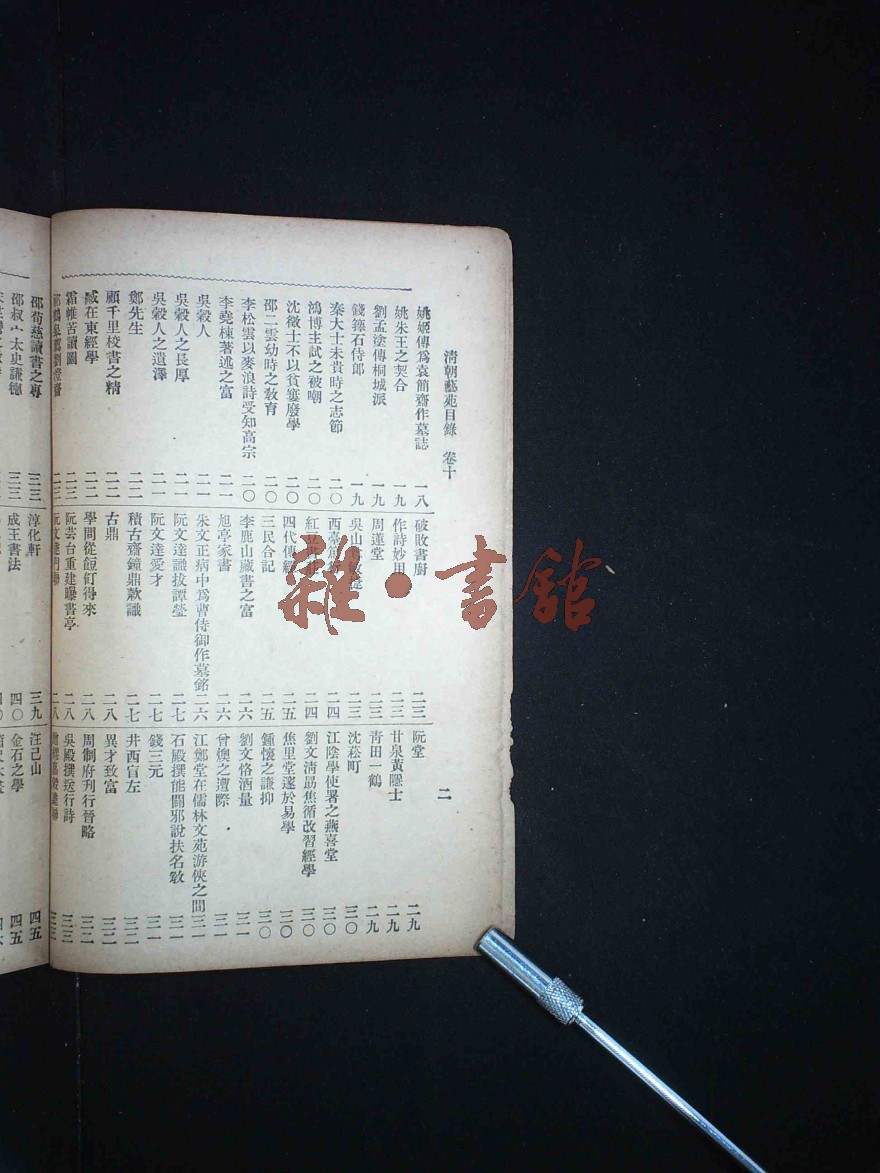 清朝藝苑目錄 卷十 二
姚姬傳爲袁簡齋作墓誌 一八
姚朱王之契合 一九
劉孟塗傳桐城派 一九
錢籜石侍郎 一九
秦大士未貴時之志節 二〇
鴻博主試之被嘲 二〇
沈徵士不以貧窶廢學 二〇
邵二雲幼時之教育 二〇
李松雲以麥浪詩受知高宗 二〇
李堯棟著述之富 二一
吳穀人 二一
吳穀人之長厚 二一
吳穀人之遺澤 二一
鄭先生 二二
顧千里校書之精 二二
臧在東經學 二二
霜帷苦讀圖 二三
破敗書廚 二三
作詩妙用 二三
周蓮堂 二三
吳山 二三
西臺 二四
紅 二四
四代傳經 二五
三民合記 二五
李鹿山藏書之富 二六
旭亭家書 二六
朱文正病中爲曹侍御作墓銘 二六
阮文達識拔譚瑩 二七
阮文達愛才 二七
積古齋鐘鼎欵識 二七
古鼎 二八
學問從飣餖得來 二八
阮芸台重建曝書亭 二八
阮堂 二九
甘泉黃隱士 二九
青田一鶴 二九
沈菘町 三〇
江陰學使署之燕喜堂 三〇
劉文清勗焦循改習經學 三〇
焦里堂邃於易學 三〇
鍾懷之謙抑 三〇
劉文恪酒量 三一
曾燠之遭際 三一
江鄭堂在儒林文苑游俠之間 三一
石殿撰能闢邪說扶名教 三一
錢三元 三一
井西盲左 三二
異才致富 三二
周制府刊行晉略 三二
吳殿撰送行詩 三三
邵荀慈讀書之專 三三
淳化軒 三九
汪己山 四五
邵叔宀太史謙德 三三
成王書法 四〇
金石之學 四五
雜·書館